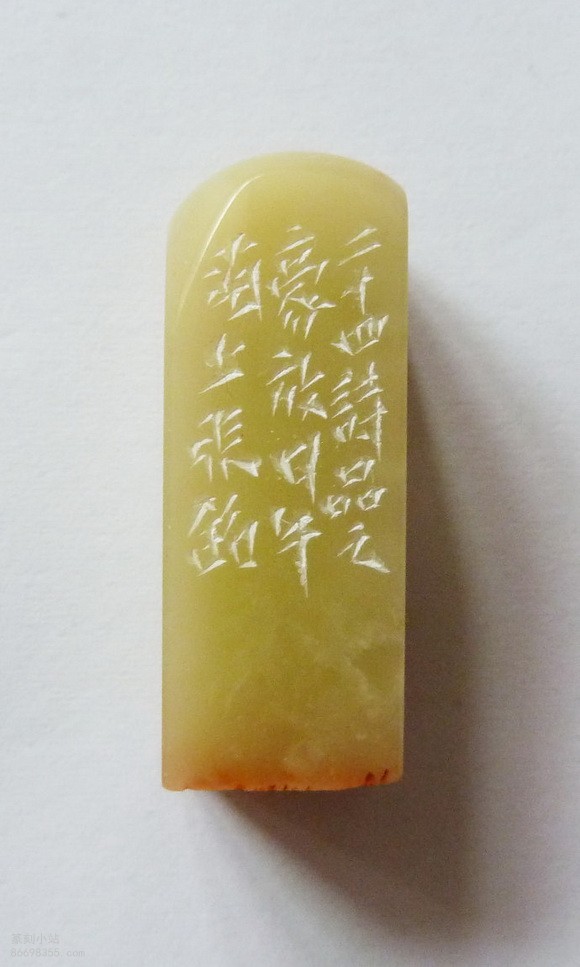 二十四詩品之
豪放甲午
蒲上張銘
篆刻小站
86698355.com